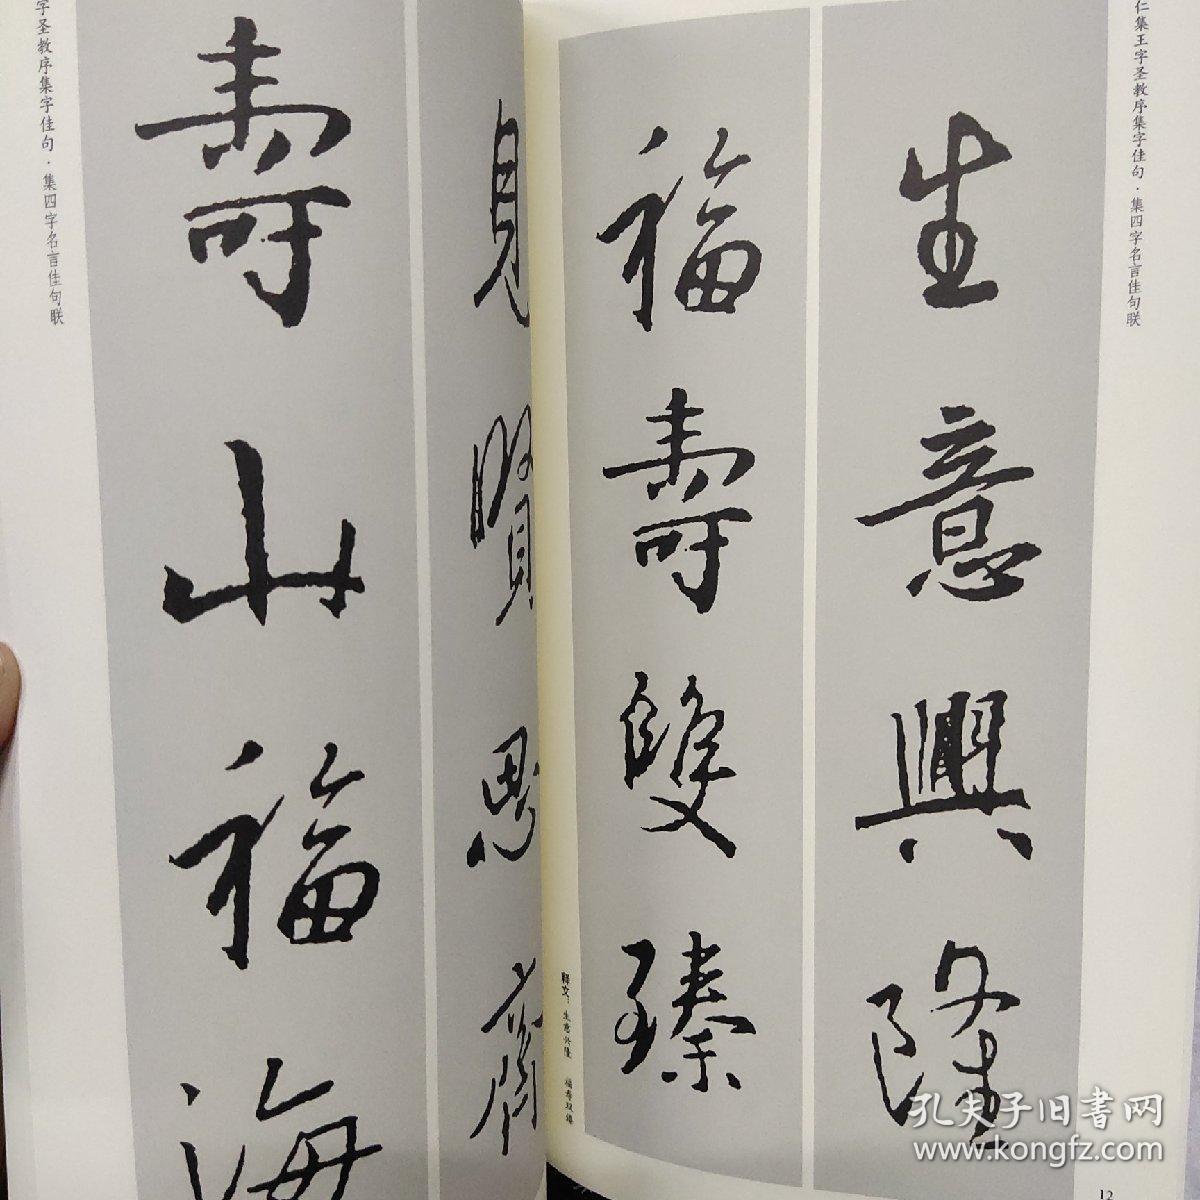 字圣教序集字佳句·集四字名言佳句联
見賢思齊
壽山福海
仁集王字圣教序集字佳句·集四字名言佳句联
生意興隆
福壽雙臻
释文：生意兴隆　福寿双臻
12
孔夫子旧书网
www.kongfz.com